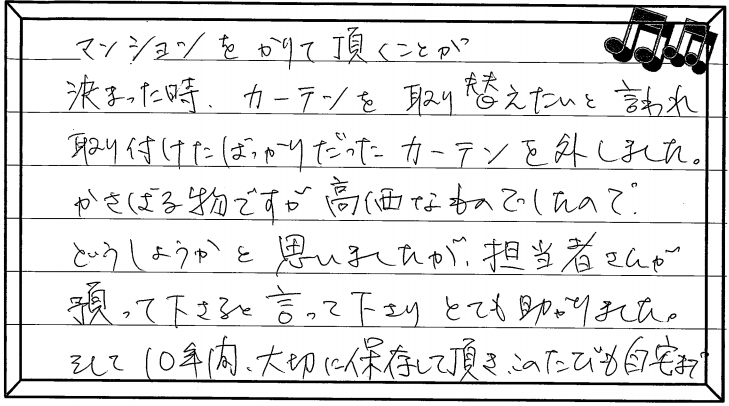 マンションをかりて頂くことが
決まった時、カーテンを取り替えたいと言われ
取り付けたばっかりだったカーテンを外しました。
かさばる物ですが高価なものでしたので、
どうしようかと思いましたが、担当者さんが
預って下さると言って下さりとても助かりました。
そして10年間、大切に保存して頂き、このたびも自宅まで